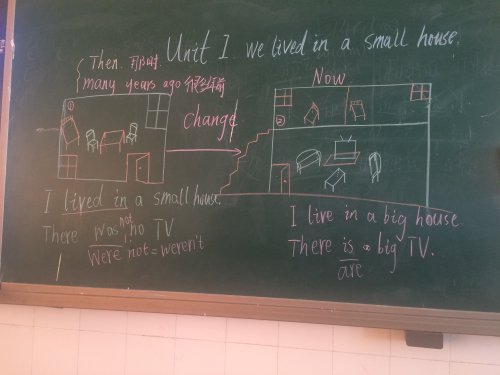 Unit 1 we lived in a small house.
Then. 那时.
many years ago 很多年前
Now
①
change
②
I lived in a small house.
There was no TV
not
were not = weren't
I live in a big house
There is a big TV.
are